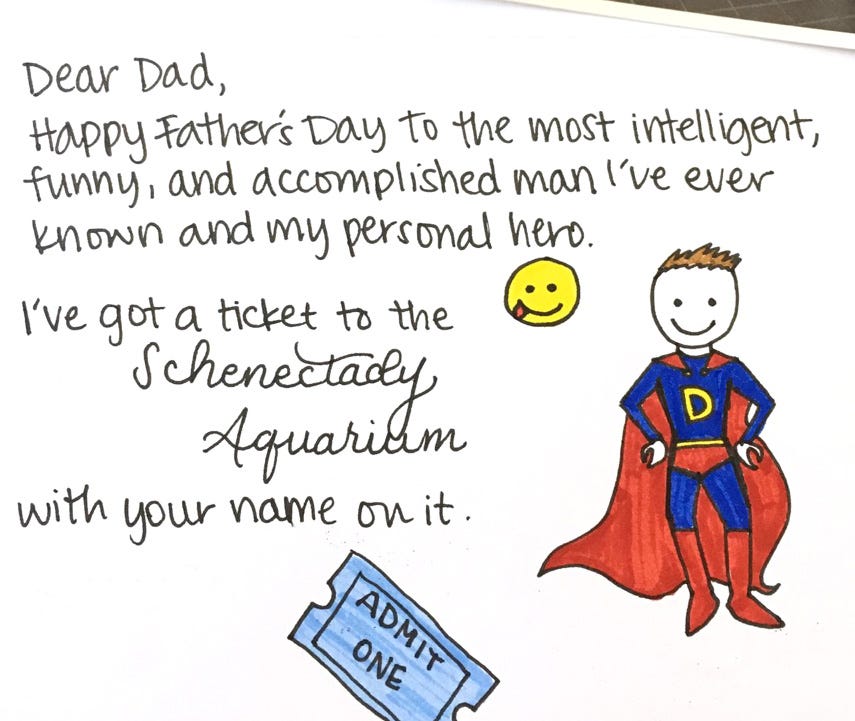 Dear Dad,
Happy Father's Day to the most intelligent,
funny, and accomplished man I've ever
known and my personal hero.
I've got a ticket to the
Schenectady
Aquarium
with your name on it.
D
ADMIT
ONE